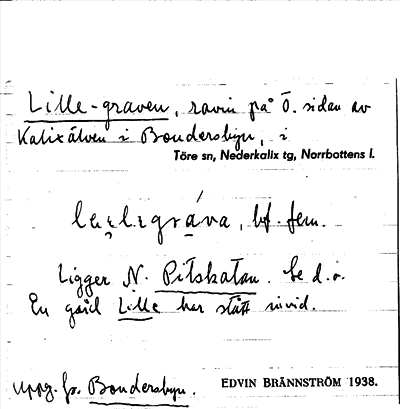 Lille-graven, ravin på Ö. sidan av
Kalixälven i Bondersbyn, i
Töre sn, Nederkalix tg, Norrbottens l.
bf. fem.
Ligger N. Pitskatan. se d. o.
En gård Lille har stått invid.
Uppg. fr. Bondersbyn.
EDVIN BRÄNNSTRÖM 1938.